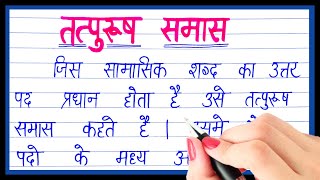 तत्पुरूष समास
जिस सामासिक शब्द का उत्तर
पद प्रधान होता है उसे तत्पुरूष
समास कहते है |
पदो के मध्य